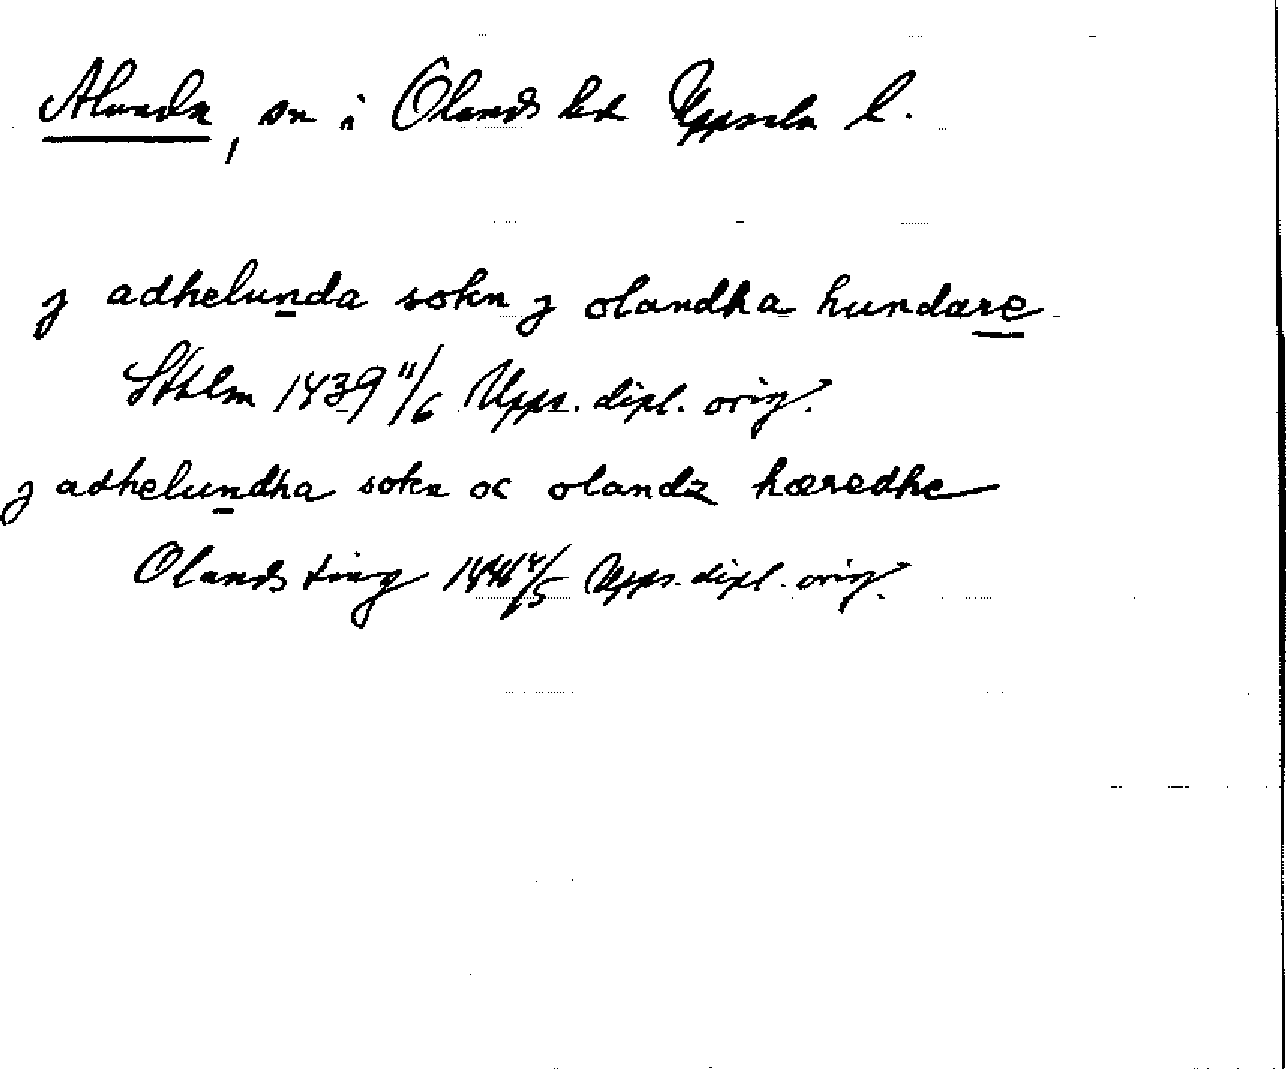 Alunda, sn i Olands hd Uppsala l.
j adhelunda sokn j olandha hundare
Sthlm 1439 11/6 Upps. dipl. orig.
j adhelundha sokn oc olandz hæredhe
Olands ting 1441 4/5 Upps. dipl. orig.